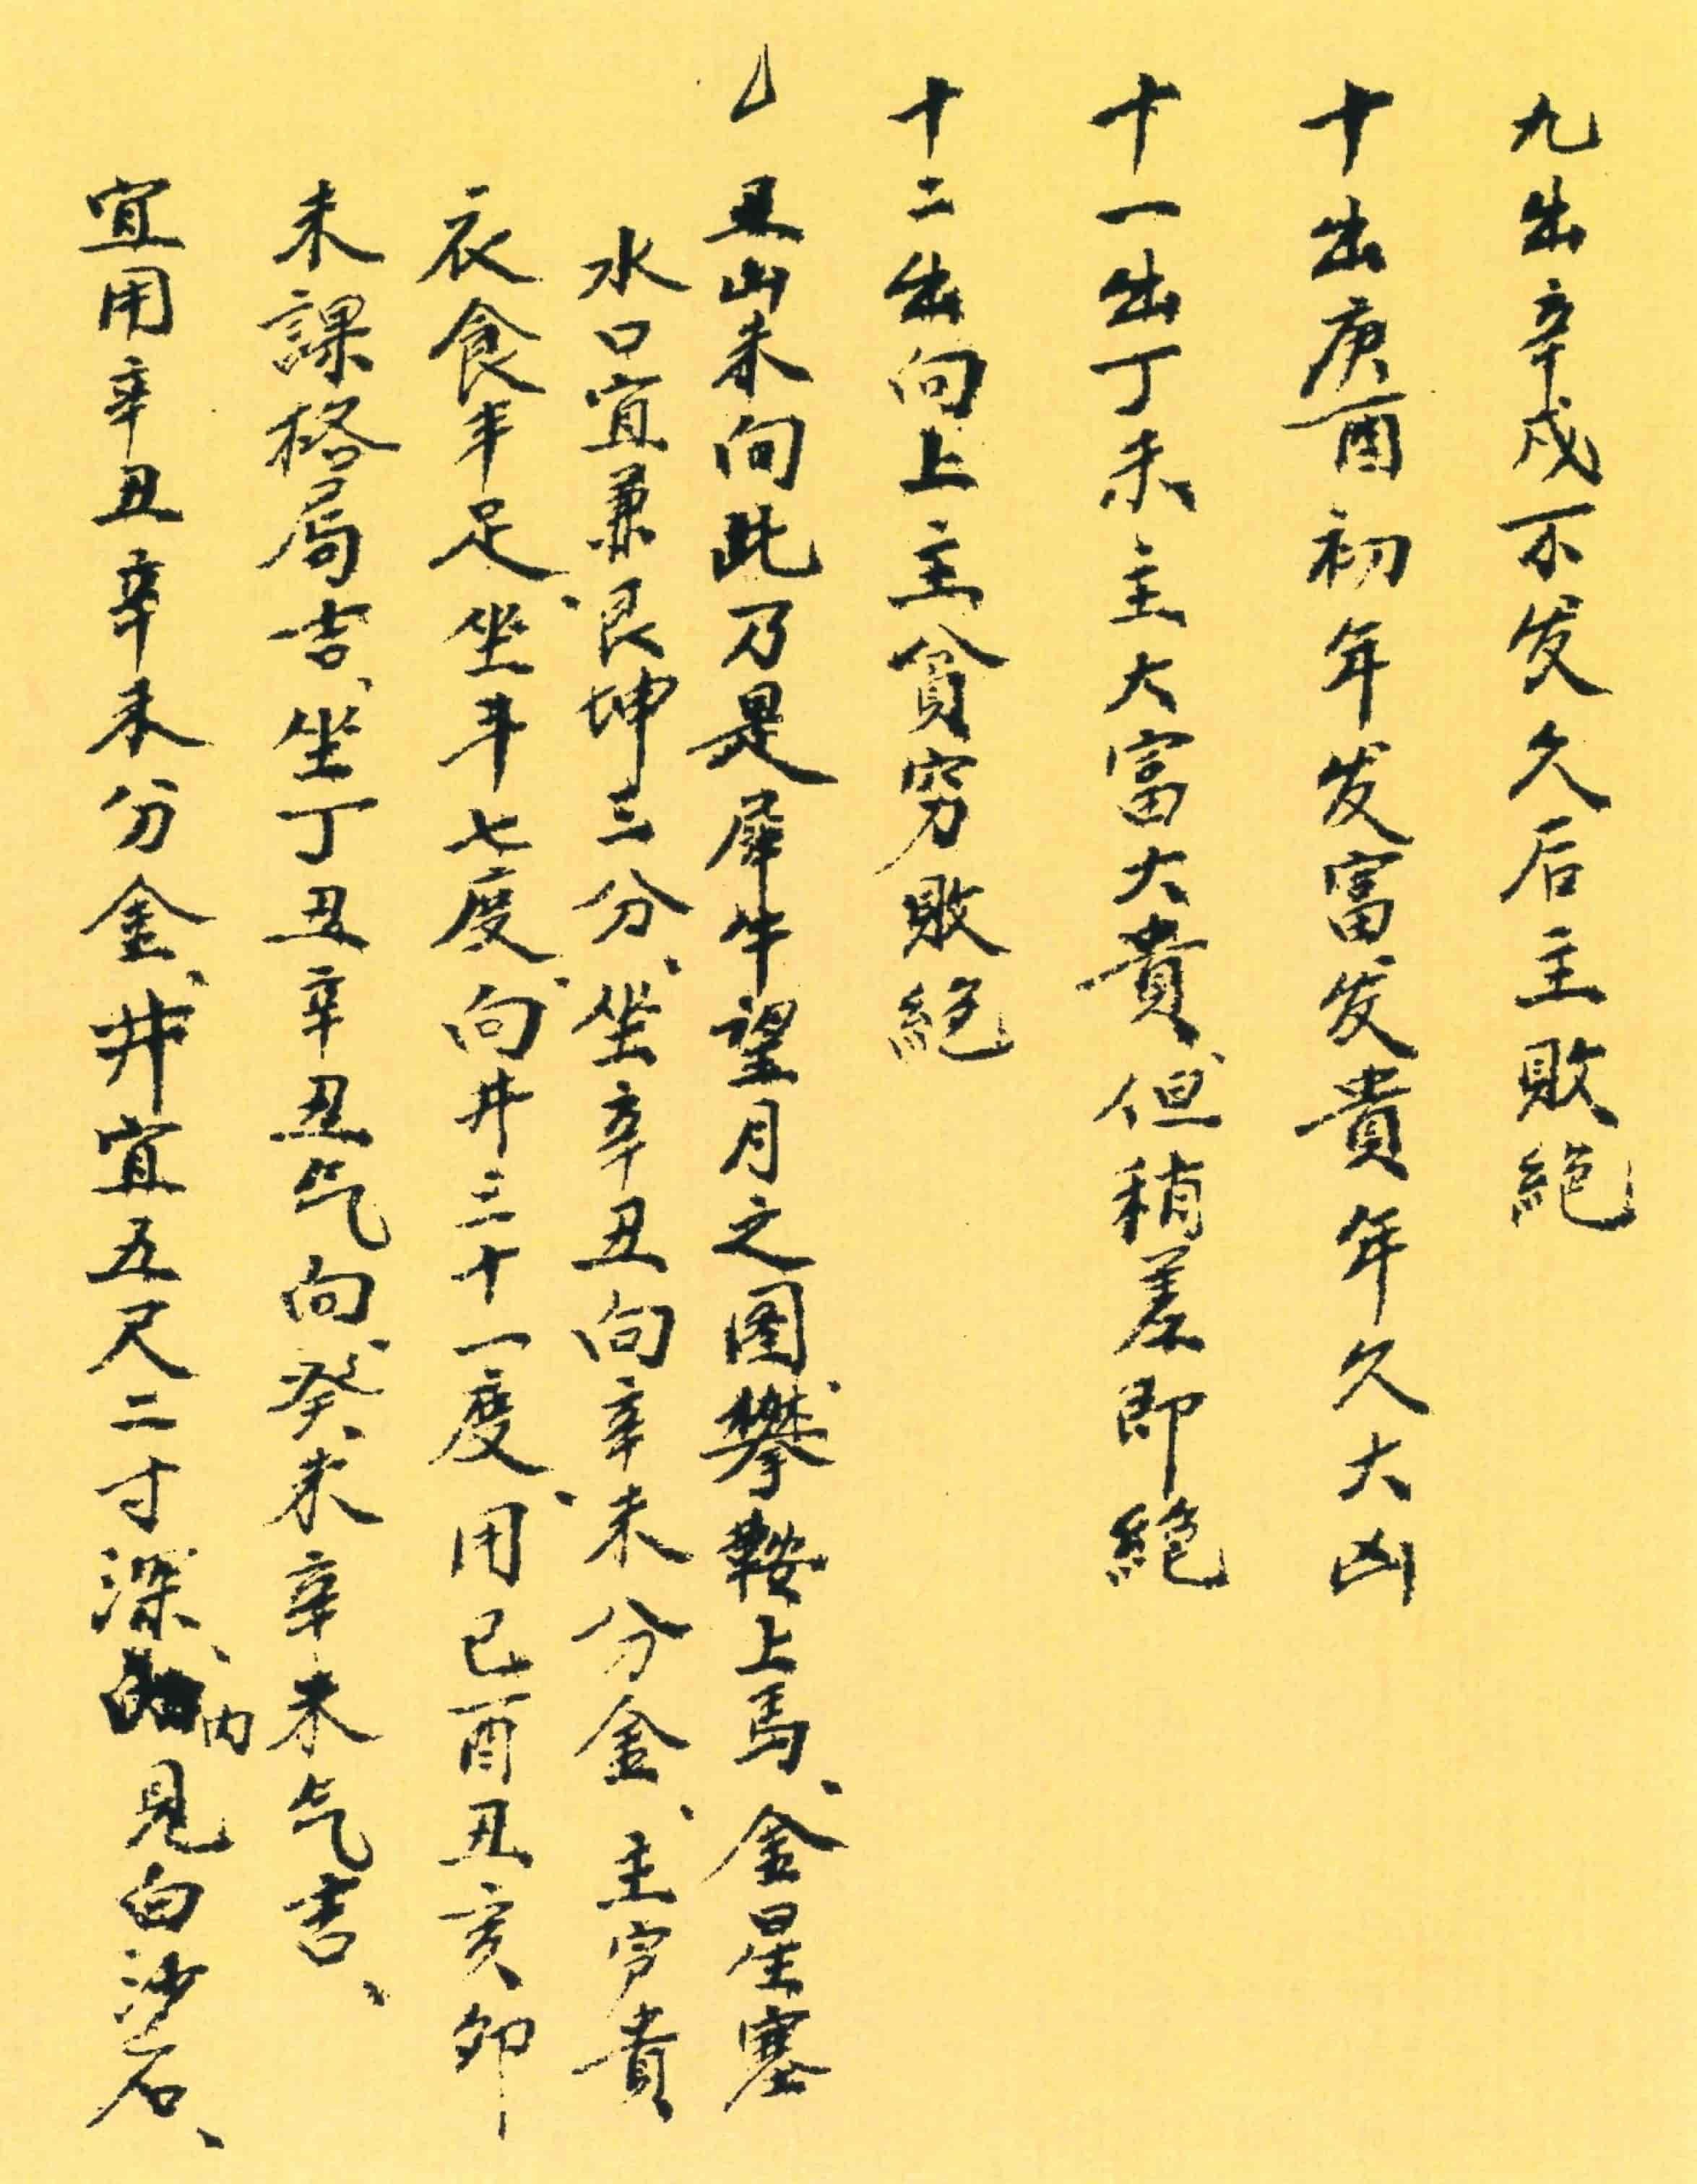 九出辛戌不发久后主敗絕
十出庚酉初年发富发貴年久大凶
十一出丁未主大富大貴但稍差即絕
十二出向上主貧穷敗絕
丑山未向此乃是犀牛望月之图攀鞍上馬、金星塞
水口宜兼艮坤三分、坐辛丑向辛未分金、主富貴
衣食丰足、坐斗七度、向井三十一度、用巳酉丑亥卯
未課格局吉、坐丁丑辛丑气向、癸未辛未气吉、
宜用辛丑辛未分金、井宜五尺二寸深、内見白沙石、